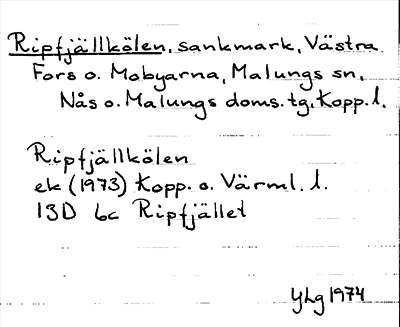 Ripfjällkölen, sankmark, Västra
Fors o. Mobyarna, Malungs sn,
Nås o. Malungs doms. tg, Kopp. l.
Ripfjällkölen
ek (1973) Kopp. o. Värml. l.
13D 6c Ripfjället
YLg 1974